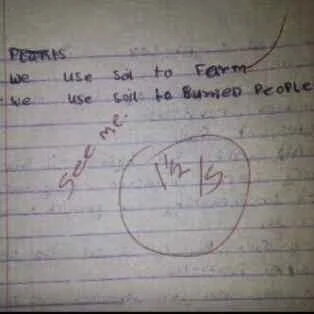 we use soil to Farm
we use soil to Burried PeoPle
See me.
1½ 15